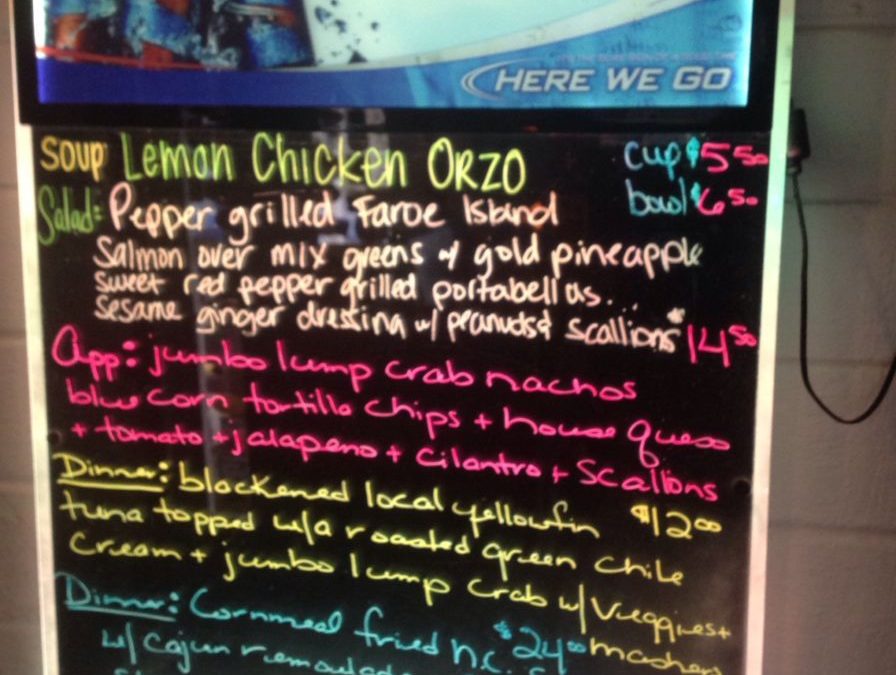 HERE WE GO
Soup Lemon Chicken Orzo cup $5 50
Salad: Pepper grilled Faroe Island bowl $6 50
Salmon over mix greens w/ gold pineapple
sweet red pepper grilled portabellas...
sesame ginger dressing w/ peanuts & scallions $14 50
App: jumbo lump crab nachos
blue corn tortilla chips + house queso
+ tomato + jalapeno + cilantro + scallions
$12 00
Dinner: blackened local yellowfin
tuna topped w/a roasted green chile
cream + jumbo lump crab w/ veggies +
mashers
$24 00
Dinner: Cornmeal fried n.c.
w/ cajun remoulade